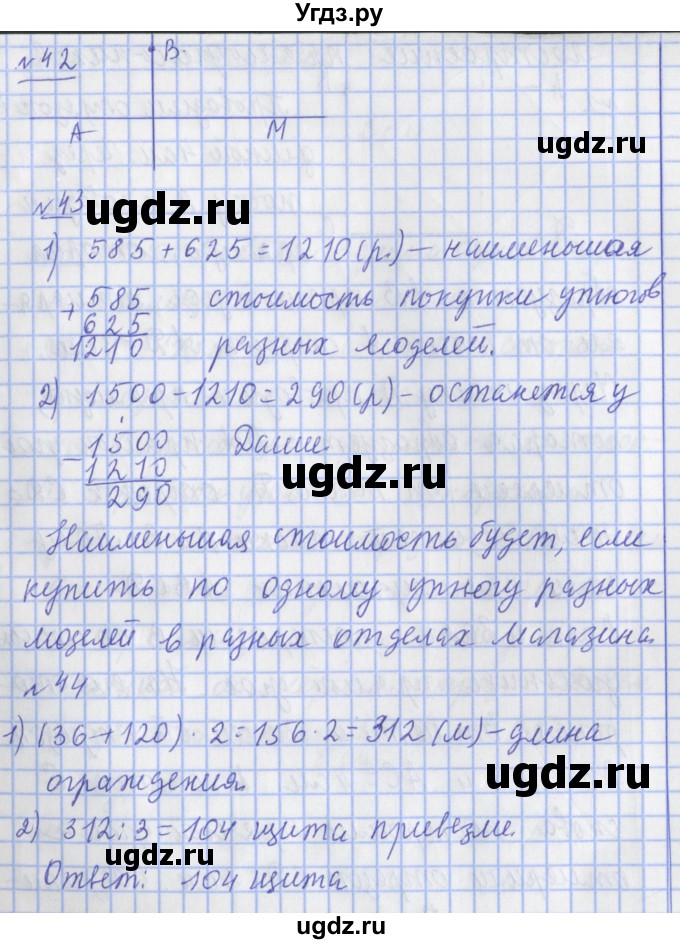 Угдз.ру
№42
В.
А М
№43
ugdz.ru
1) 585 + 625 = 1210 (р.) – наименьшая
+ 585 стоимость покупки утюгов
625
1210 разных моделей.
2) 1500 – 1210 = 290 (р) – останется у
– 1500 Даши
1210
290
ugdz.ru
Наименьшая стоимость будет, если
купить по одному утюгу разных
моделей в разных отделах магазина.
№44
1) (36+120) · 2 = 156 · 2 = 312 (м) – длина
ограждения.
ugdz.ru
2) 312 : 3 = 104 щита привезли.
ugdz.ru
Ответ: 104 щита
ugdz.ru